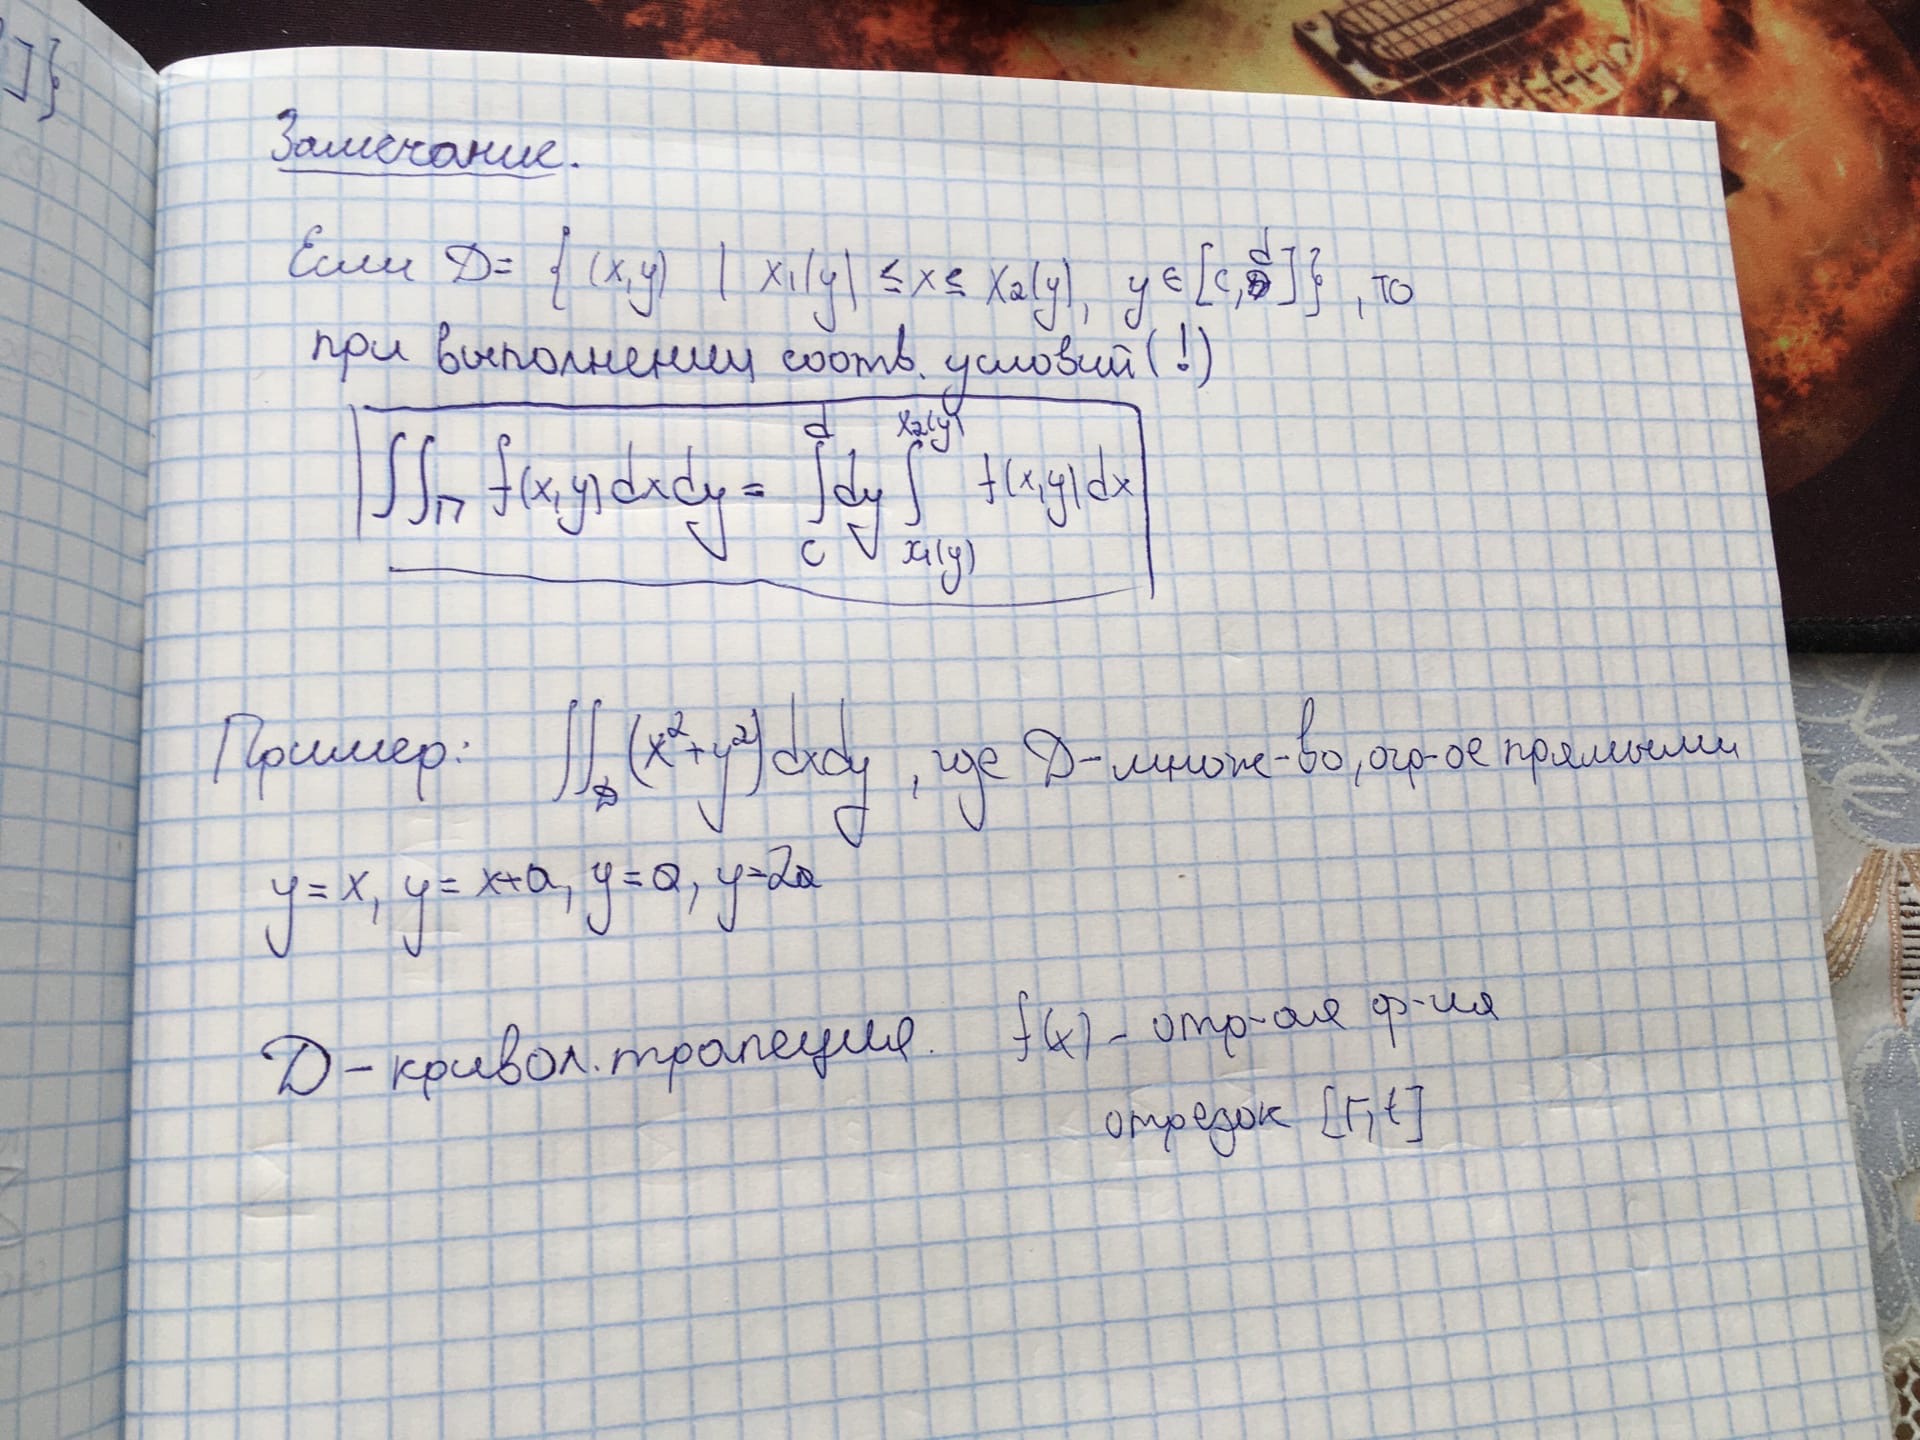 ]}
Замечание.
Если D = { (x,y) | x₁(y) ≤ x ≤ x₂(y), y ∈ [c, d]}, то
при выполнении соотв. условий (!)
∬_П f(x,y) dxdy = ∫_c^d dy ∫_{x₁(y)}^{x₂(y)} f(x,y) dx
Пример: ∬_D (x²+y²) dxdy, где D - множ-во, огр-ое прямыми
y = x, y = x+a, y = a, y = 2a
D - кривол. трапеция. f(x) - отр-ая ф-ия
отрезок [r, t]